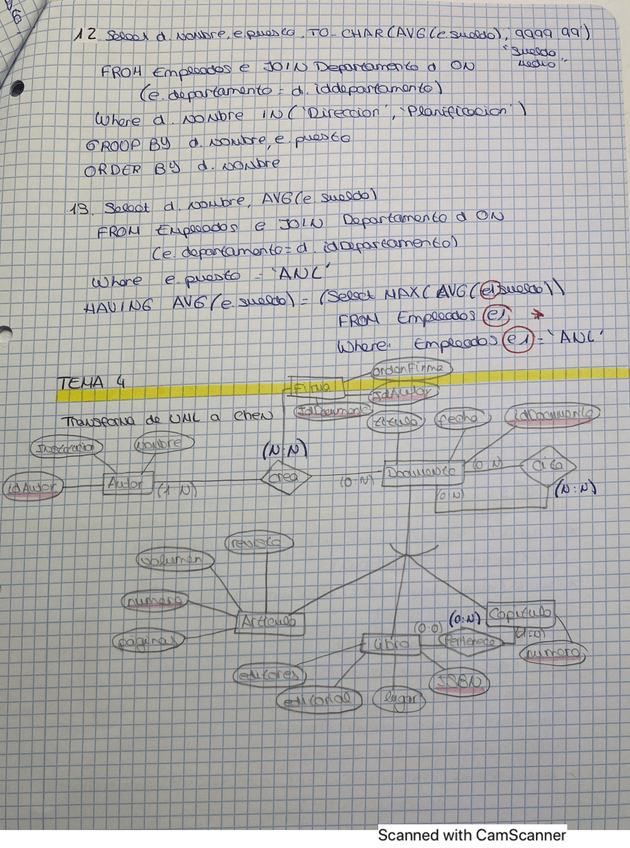 12. Select d. nombre, e.puesto, TO_CHAR(AVG(e sueldo), 9999 99')
"Sueldo
Medio"
FROM Empleados e JOIN Departamento d ON
(e.departamento = d. iddepartamento)
Where d. nombre IN ('Direccion', 'Planificacion')
GROUP BY d. nombre, e. puesto
ORDER BY d. nombre
13. Select d. nombre, AVG(e sueldo)
FROM Empleados e JOIN Departamento d ON
(e.departamento = d. idDepartamento)
Where e.puesto = 'ANL'
HAVING AVG(e.sueldo) = (Select MAX(AVG(e1 sueldo))
FROM Empleados e1
Where. Empleados e1 = 'ANL'
TEMA 4
Firma
ordenFirma
IdAutor
IdDocumento
Transforma de UML a Chen
titulo
fecha
idDocumento
nombre
(N:N)
idAutor
Autor
(1 N)
crea
(0:N)
Documento
(0 N)
cita
(0 N)
(N:N)
revista
volumen
numero
paginas
Articulo
Libro
(0:0)
(0:N)
Pertenece
Capitulo
numero
editores
editorial
lugar
ISBN
Scanned with CamScanner